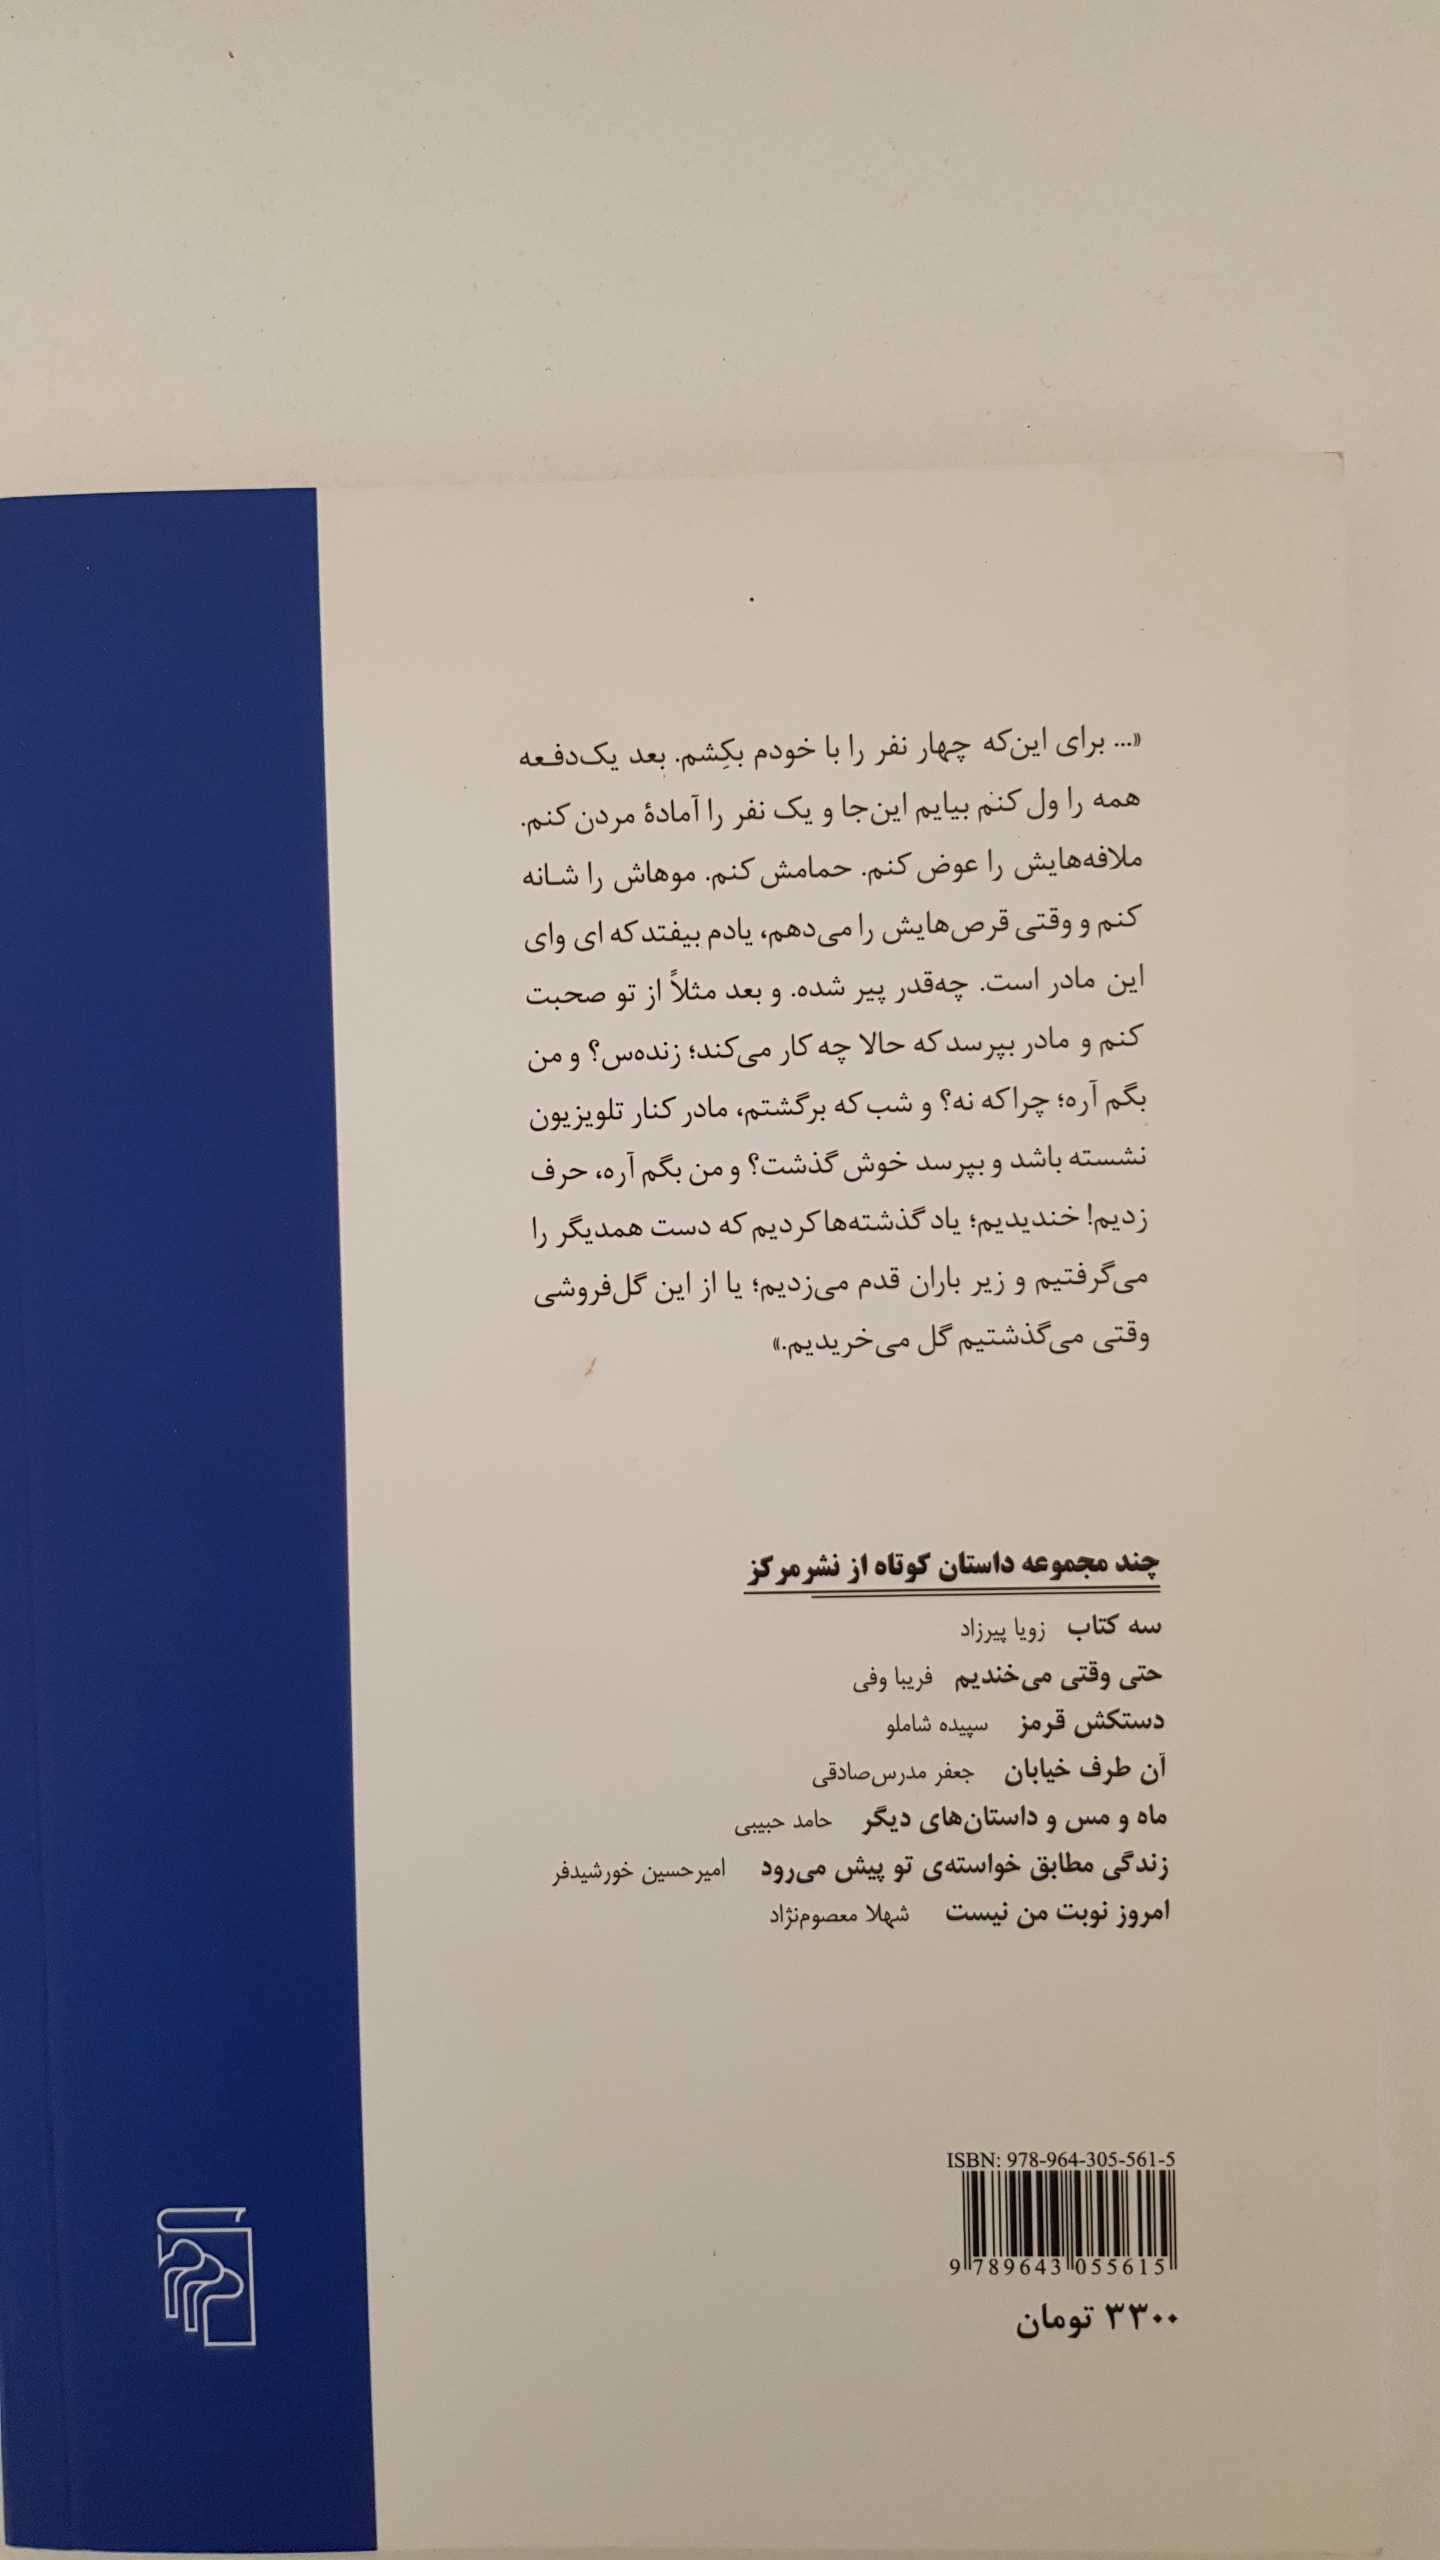 «... برای این‌که چهار نفر را با خودم بکِشم. بعد یک‌دفعه
همه را ول کنم بیایم این‌جا و یک نفر را آمادهٔ مردن کنم.
ملافه‌هایش را عوض کنم. حمامش کنم. موهاش را شانه
کنم و وقتی قرص‌هایش را می‌دهم، یادم بیفتد که ای وای
این مادر است. چه‌قدر پیر شده. و بعد مثلاً از تو صحبت
کنم و مادر بپرسد که حالا چه کار می‌کند؛ زنده‌س؟ و من
بگم آره؛ چرا که نه؟ و شب که برگشتم، مادر کنار تلویزیون
نشسته باشد و بپرسد خوش گذشت؟ و من بگم آره، حرف
زدیم! خندیدیم؛ یاد گذشته‌ها کردیم که دست همدیگر را
می‌گرفتیم و زیر باران قدم می‌زدیم؛ یا از این گل‌فروشی
وقتی می‌گذشتیم گل می‌خریدیم.»
چند مجموعه داستان کوتاه از نشر مرکز
سه کتاب زویا پیرزاد
حتی وقتی می‌خندیم فریبا وفی
دستکش قرمز سپیده شاملو
آن طرف خیابان جعفر مدرس‌صادقی
ماه و مس و داستان‌های دیگر حامد حبیبی
زندگی مطابق خواسته‌ی تو پیش می‌رود امیرحسین خورشیدفر
امروز نوبت من نیست شهلا معصوم‌نژاد
ISBN: 978-964-305-561-5
9 789643 055615
۳۳۰۰ تومان